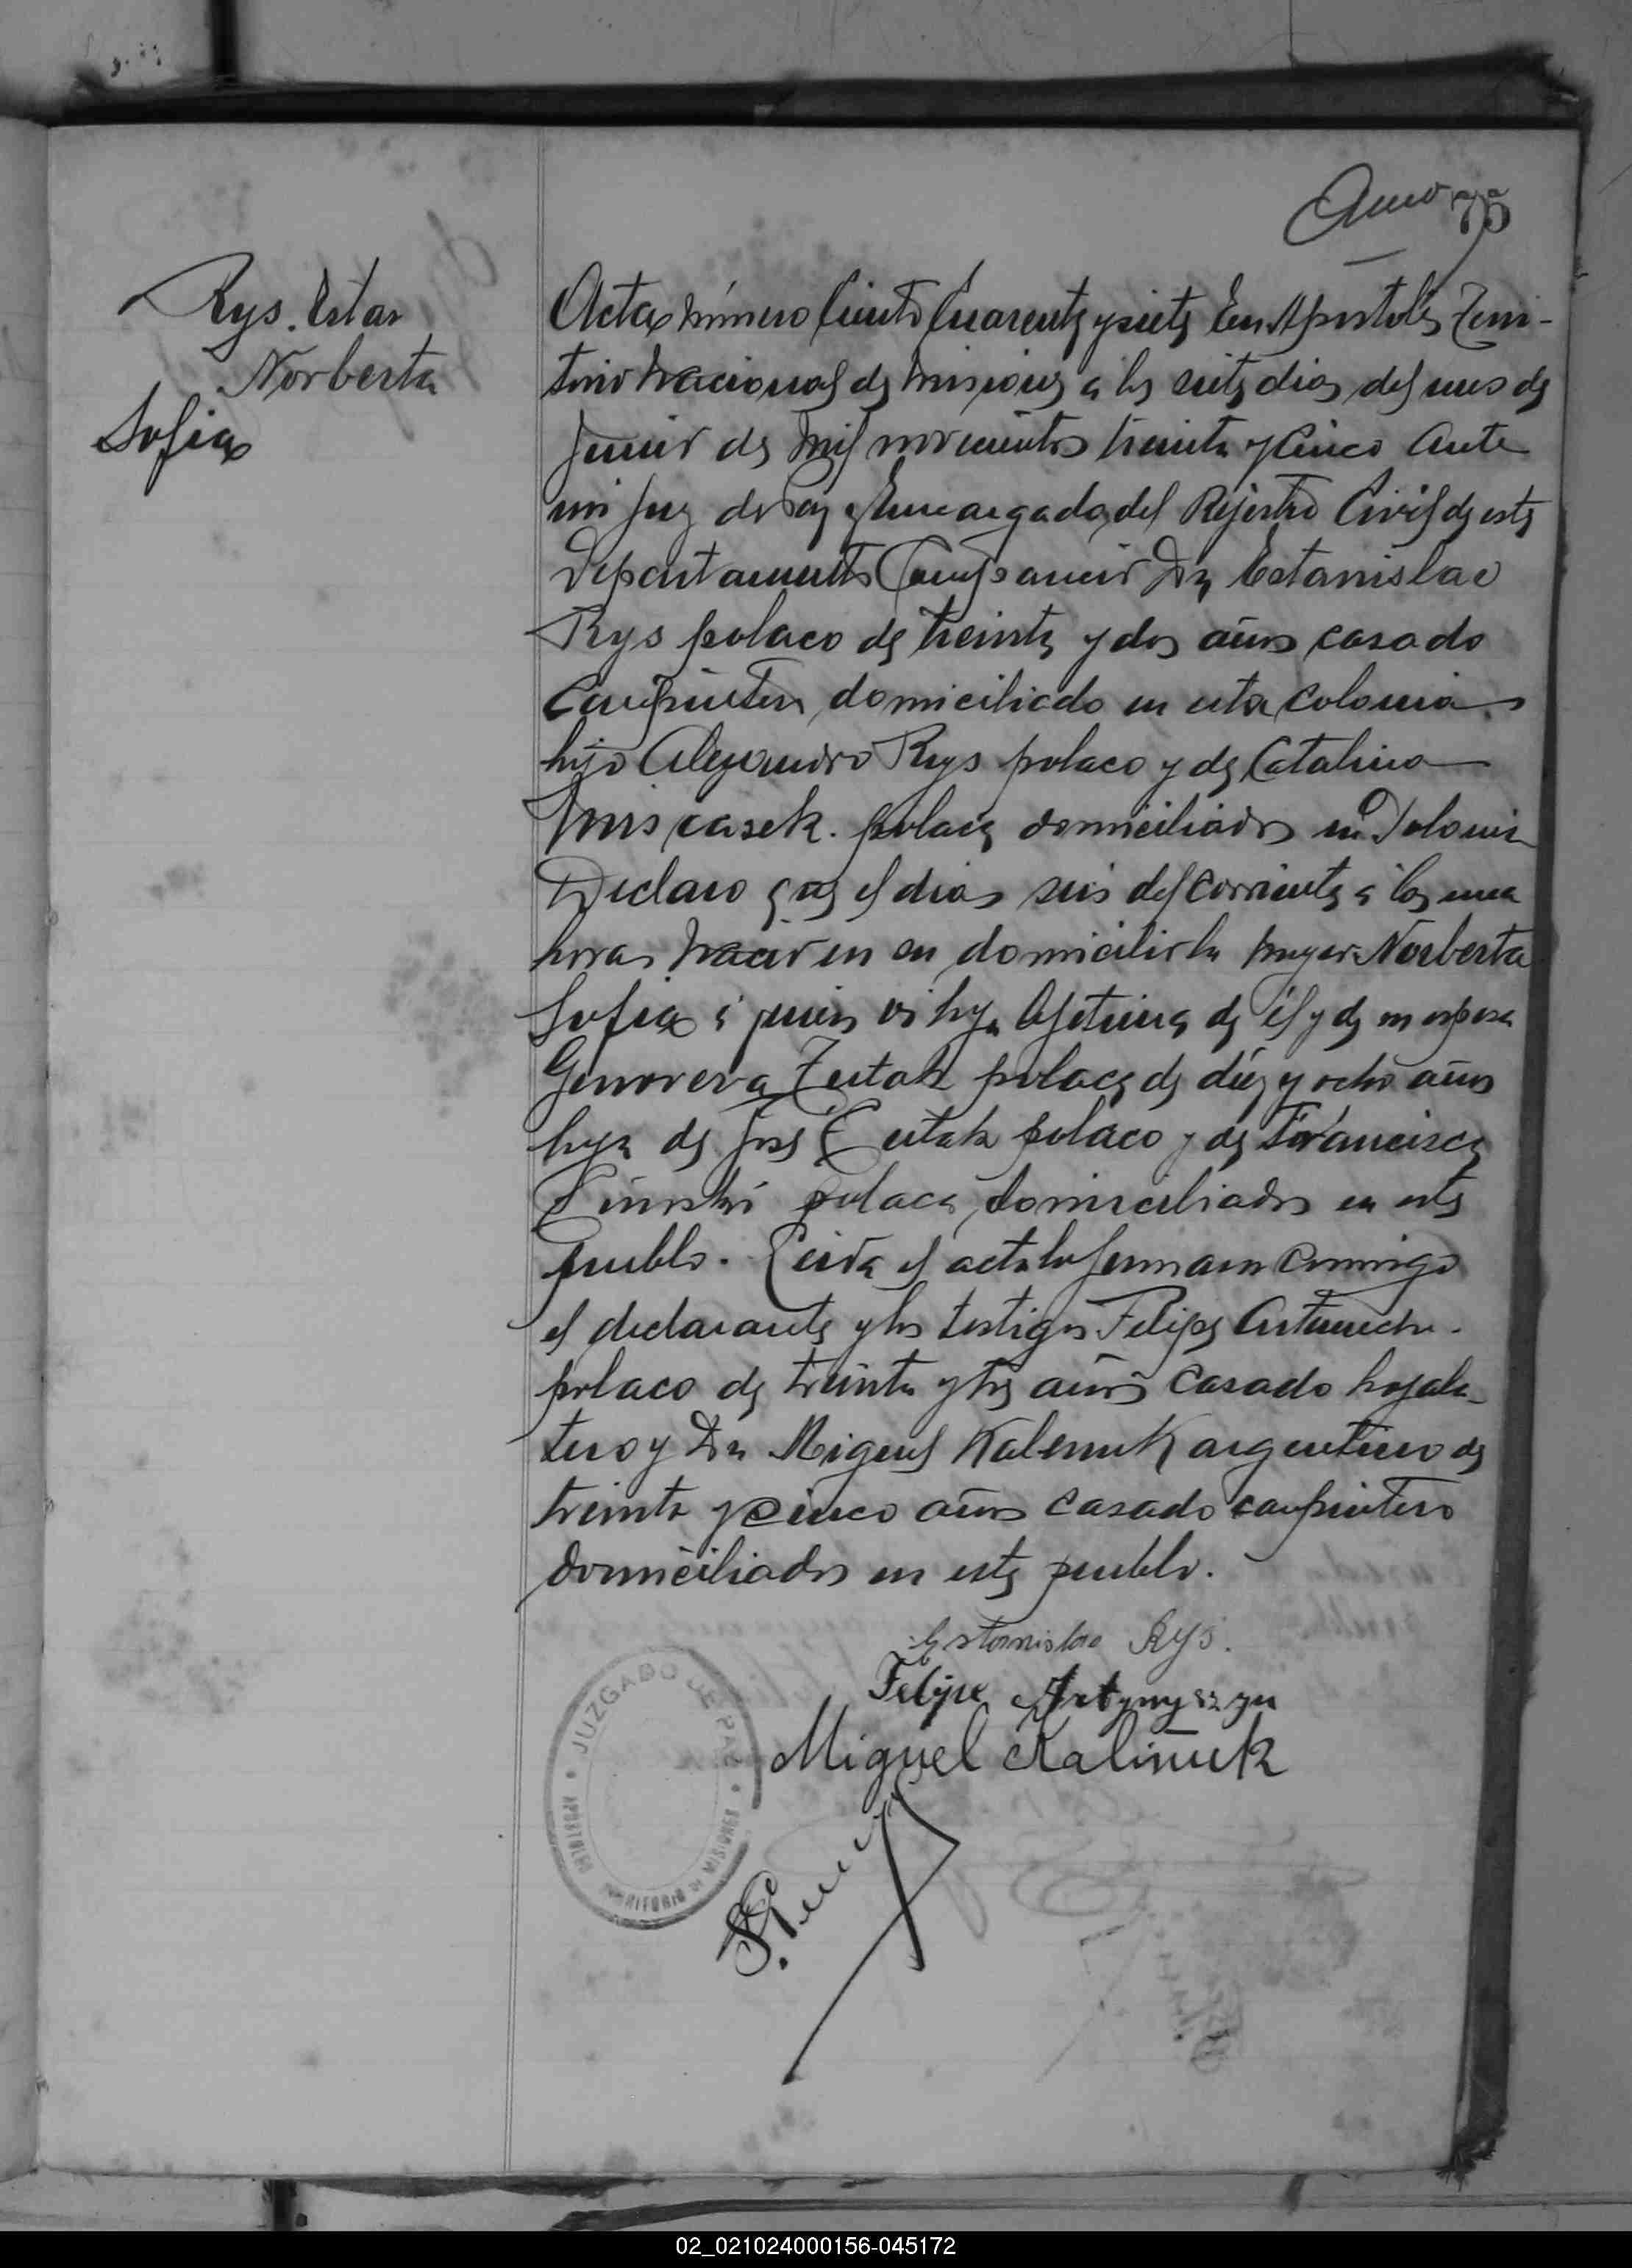 75
Rys. Estar
Norberta
Sofia
Acta número Ciento Cuarenta y siete En Apostoles Terri-
torio Nacional de Misiones a los siete dias del mes de
Junio de Mil novecientos treinta y Cinco Ante
mi Juez de Paz y Encargado del Rejistro Civil de este
Departamento Compareció Dn Estanislao
Rys polaco de treinta y dos años casado
Carpintero domiciliado en esta Colonia
hijo Alejandro Rys polaco y de Catalina
polaca domiciliados en Polonia
Declaro que el dia seis del corriente a las
horas nació en su domicilio la mujer Norberta
Sofia a quien es hija lejitima de él y de su esposa
Genoveva polaca de diez y ocho años
hija de José polaco y de Francisca
polaca domiciliados en este
pueblo. Leida el acta la firmaron conmigo
el declarante y los testigos Felipe
polaco de treinta y tres años casado hojala-
tero y Dn Miguel Kalenuk argentino de
treinta y cinco años casado carpintero
domiciliados en este pueblo.
Estanislao Rys.
Felipe Artymyszyn
Miguel Kaliñuk
JUZGADO DE PAZ
APOSTOLES
TERRITORIO DE MISIONES
02_021024000156-045172